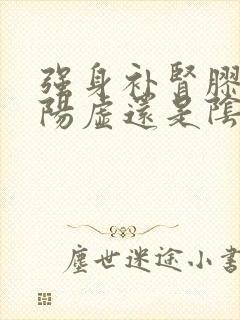 强身补腎膠
陽虛還是陰
塵世迷途小書